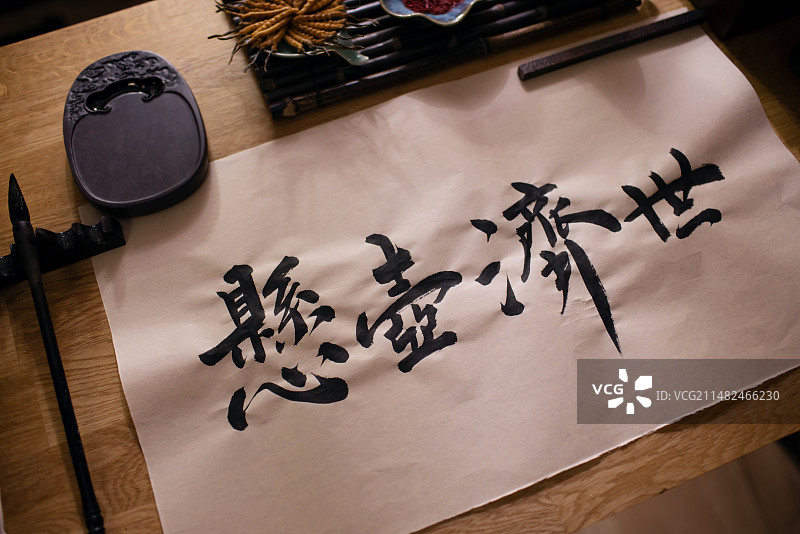 懸壺濟世
VCG
ID: VCG211482466230